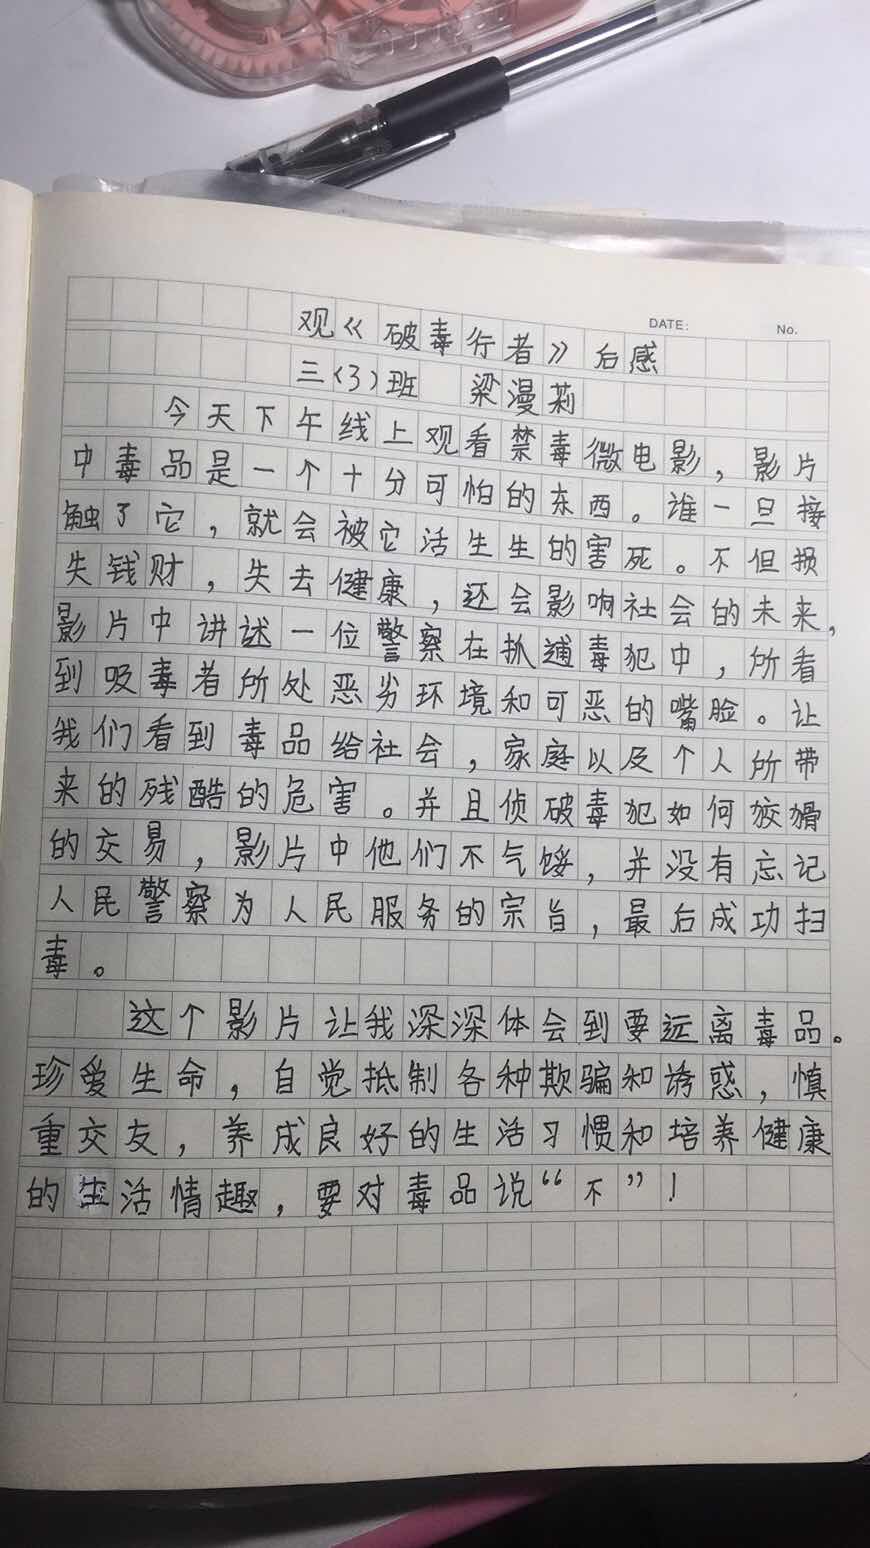 DATE: No.
观《破毒行者》后感
三(3)班 梁漫莉
今天下午线上观看禁毒微电影，影片
中毒品是一个十分可怕的东西。谁一旦接
触了它，就会被它活生生的害死。不但损
失钱财，失去健康，还会影响社会的未来，
影片中讲述一位警察在抓逋毒犯中，所看
到吸毒者所处恶劣环境和可恶的嘴脸。让
我们看到毒品给社会，家庭以及个人所带
来的残酷的危害。并且侦破毒犯如何狡猾
的交易，影片中他们不气馁，并没有忘记
人民警察为人民服务的宗旨，最后成功扫
毒。
这个影片让我深深体会到要远离毒品。
珍爱生命，自觉抵制各种欺骗和诱惑，慎
重交友，养成良好的生活习惯和培养健康
的生活情趣，要对毒品说“不”！